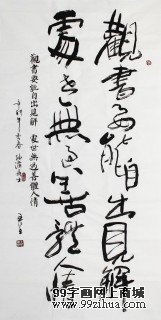 觀書要能自出見解
處世無過善體人情
觀書要能自出見解 處世無過善體人情
辛卯年
99字画网上商城